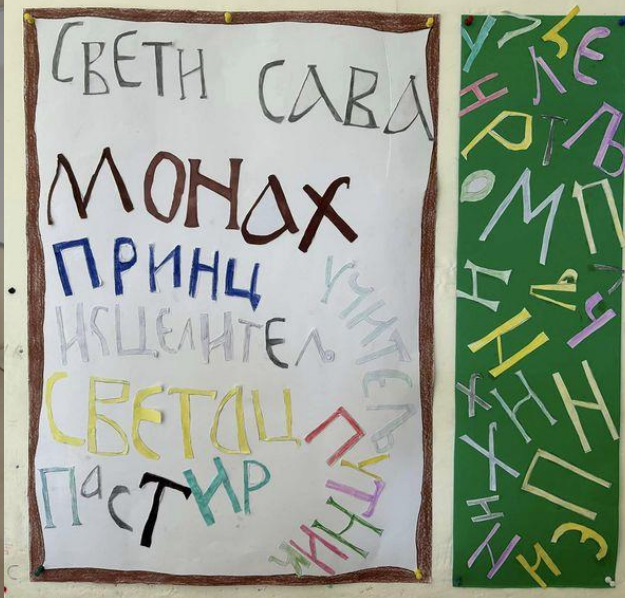 СВЕТИ САВА
МОНАХ
ПРИНЦ
УЧИТЕЉ
ИСЦЕЛИТЕЉ
СВЕТАЦ
ПУТНИК
ПАСТИР